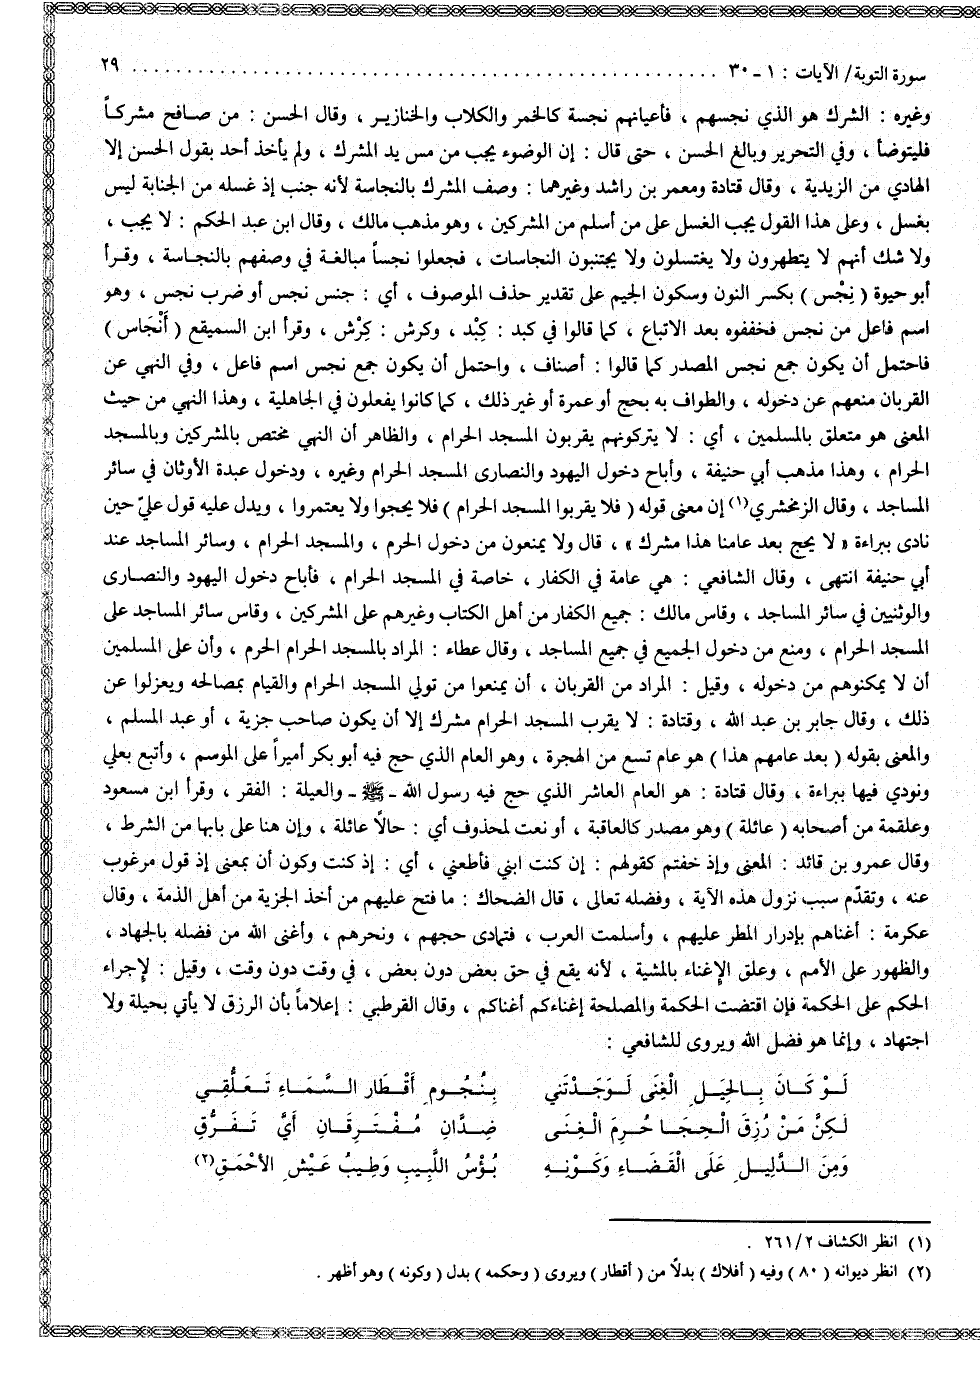 سورة التوبة / الآيات : ١ - ٣٠ ............................................. ٢٩
وغيره : الشرك هو الذي نجسهم ، فأعيانهم نجسة كالخمر والكلاب والخنازير ، وقال الحسن : من صافح مشركاً
فليتوضأ ، وفي التحرير وبالغ الحسن ، حتى قال : إن الوضوء يجب من مس يد المشرك ، ولم يأخذ أحد بقول الحسن إلا
الهادي من الزيدية ، وقال قتادة ومعمر بن راشد وغيرهما : وصف المشرك بالنجاسة لأنه جنب إذ غسله من الجنابة ليس
بغسل ، وعلى هذا القول يجب الغسل على من أسلم من المشركين ، وهو مذهب مالك ، وقال ابن عبد الحكم : لا يجب ،
ولا شك أنهم لا يتطهرون ولا يغتسلون ولا يجتنبون النجاسات ، فجعلوا نجساً مبالغة في وصفهم بالنجاسة ، وقرأ
أبو حيوة ( نِجْس ) بكسر النون وسكون الجيم على تقدير حذف الموصوف ، أي : جنس نجس أو ضرب نجس ، وهو
اسم فاعل من نجس فخففوه بعد الاتباع ، كما قالوا في كبد : كِبْد ، وكرش : كِرْش ، وقرأ ابن السميقع ( أَنْجَاس )
فاحتمل أن يكون جمع نجس المصدر كما قالوا : أصناف ، واحتمل أن يكون جمع نجس اسم فاعل ، وفي النهي عن
القربان منعهم عن دخوله ، والطواف به بحج أو عمرة أو غير ذلك ، كما كانوا يفعلون في الجاهلية ، وهذا النهي من حيث
المعنى هو متعلق بالمسلمين ، أي : لا يتركونهم يقربون المسجد الحرام ، والظاهر أن النهي مختص بالمشركين وبالمسجد
الحرام ، وهذا مذهب أبي حنيفة ، وأباح دخول اليهود والنصارى المسجد الحرام وغيره ، ودخول عبدة الأوثان في سائر
المساجد ، وقال الزمخشري(١) إن معنى قوله ( فلا يقربوا المسجد الحرام ) فلا يحجوا ولا يعتمروا ، ويدل عليه قول عليّ حين
نادى ببراءة « لا يحج بعد عامنا هذا مشرك » ، قال ولا يمنعون من دخول الحرم ، والمسجد الحرام ، وسائر المساجد عند
أبي حنيفة انتهى ، وقال الشافعي : هي عامة في الكفار ، خاصة في المسجد الحرام ، فأباح دخول اليهود والنصارى
والوثنيين في سائر المساجد ، وقاس مالك : جميع الكفار من أهل الكتاب وغيرهم على المشركين ، وقاس سائر المساجد على
المسجد الحرام ، ومنع من دخول الجميع في جميع المساجد ، وقال عطاء : المراد بالمسجد الحرام الحرم ، وأن على المسلمين
أن لا يمكنوهم من دخوله ، وقيل : المراد من القربان ، أن يمنعوا من تولي المسجد الحرام والقيام بمصالحه ويعزلوا عن
ذلك ، وقال جابر بن عبد الله ، وقتادة : لا يقرب المسجد الحرام مشرك إلا أن يكون صاحب جزية ، أو عبد المسلم ،
والمعنى بقوله ( بعد عامهم هذا ) هو عام تسع من الهجرة ، وهو العام الذي حج فيه أبو بكر أميراً على الموسم ، وأتبع بعلي
ونودي فيها ببراءة ، وقال قتادة : هو العام العاشر الذي حج فيه رسول الله - ﷺ - والعيلة : الفقر ، وقرأ ابن مسعود
وعلقمة من أصحابه ( عائلة ) وهو مصدر كالعاقبة ، أو نعت لمحذوف أي : حالًا عائلة ، وإن هنا على بابها من الشرط ،
وقال عمرو بن قائد : المعنى وإذ خفتم كقولهم : إن كنت ابني فأطعني ، أي : إذ كنت وكون أن بمعنى إذ قول مرغوب
عنه ، وتقدّم سبب نزول هذه الآية ، وفضله تعالى ، قال الضحاك : ما فتح عليهم من أخذ الجزية من أهل الذمة ، وقال
عكرمة : أغناهم بإدرار المطر عليهم ، وأسلمت العرب ، فتمادى حجهم ، ونحرهم ، وأغنى الله من فضله بالجهاد ،
والظهور على الأمم ، وعلق الإغناء بالمشية ، لأنه يقع في حق بعض دون بعض ، في وقت دون وقت ، وقيل : لإجراء
الحكم على الحكمة فإن اقتضت الحكمة والمصلحة إغناءكم أغناكم ، وقال القرطبي : إعلاماً بأن الرزق لا يأتي بحيلة ولا
اجتهاد ، وإنما هو فضل الله ويروى للشافعي :
لَوْ كَانَ بِالحِيَلِ الْغِنَى لَوَجَدْتَني بِنُجُومِ أَقْطَارِ السَّمَاءِ تَعَلُّقِي
لَكِنَّ مَنْ رُزِقَ الْحِجَا حُرِمَ الْغِنَى ضِدَّانِ مُفْتَرِقَانِ أَيَّ تَفَرُّقِ
وَمِنَ الدَّلِيلِ عَلَى الْقَضَاءِ وَكَوْنِهِ بُؤْسُ اللَّبِيبِ وَطِيبُ عَيْشِ الأحْمَقِ(٢)
(١) انظر الكشاف ٢/ ٢٦١ .
(٢) انظر ديوانه ( ٨٠ ) وفيه ( أفلاك ) بدلًا من ( أقطار ) ويروى ( وحكمه ) بدل ( وكونه ) وهو أظهر .